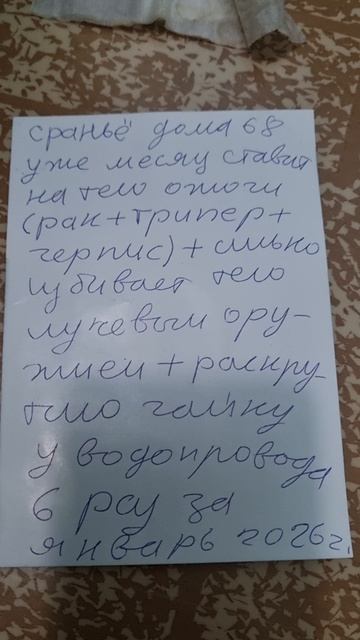 сраньё дома 68
уже месяц ставит
на тело ожоги
(рак+трипер+
герпис)+сильно
избивает тело
лучевым ору-
жием+раскру-
тило гайку
у водопровода
6 раз за
январь 2026г.